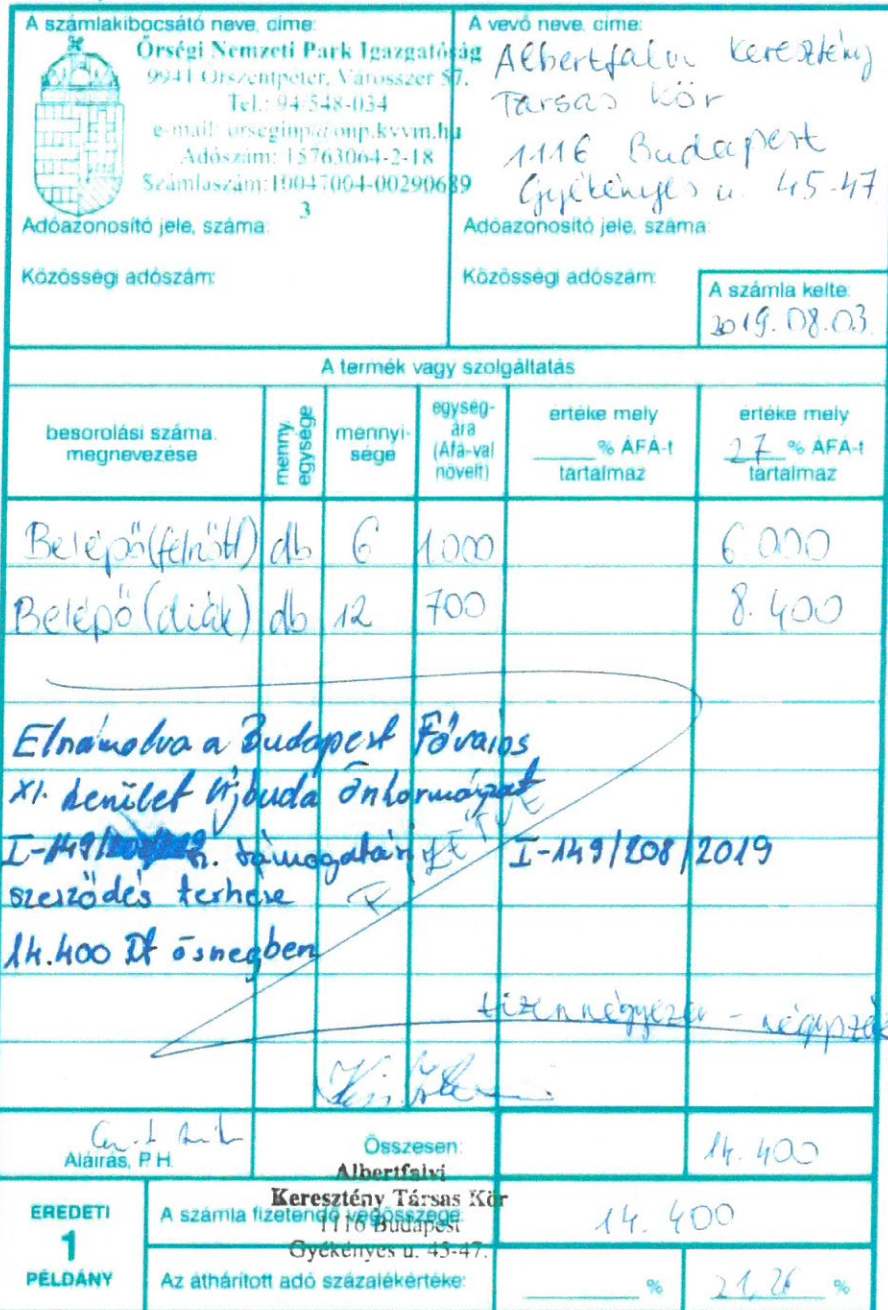 A számlakibocsátó neve, címe:
Őrségi Nemzeti Park Igazgatóság
9941 Őriszentpéter, Városszer 57.
Tel.: 94/548-034
e-mail: orseginp@onp.kvvm.hu
Adószám: 15763064-2-18
Számlaszám: 10047004-00290689
3
Adóazonosító jele, száma:
Közösségi adószám:
A vevő neve, címe:
Albertfalvi Keresztény
Társas Kör
1116 Budapest
Gyékényes u. 45-47
Adóazonosító jele, száma:
Közösségi adószám:
A számla kelte:
2019.08.03.
A termék vagy szolgáltatás
besorolási száma, megnevezése
menny. egysége
mennyisége
egységára (Áfá-val növelt)
értéke mely ____% ÁFÁ-t tartalmaz
értéke mely 27 % ÁFÁ-t tartalmaz
Belépő (felnőtt) db 6 1000 6.000
Belépő (diák) db 12 700 8.400
Elszámolva a Budapest Főváros
XI. kerület Újbuda Önkormányzat
I-149/ sz. támogatási I-149/208/2019
szerződés terhére
14.400 Ft összegben
tizennégyezer - négyszáz
Aláírás, P.H.
Összesen: 14.400
Albertfalvi
Keresztény Társas Kör
1116 Budapest
Gyékényes u. 45-47.
EREDETI
1
PÉLDÁNY
A számla fizetendő végösszege: 14.400
Az áthárított adó százalékértéke: ____ % 21,26 %